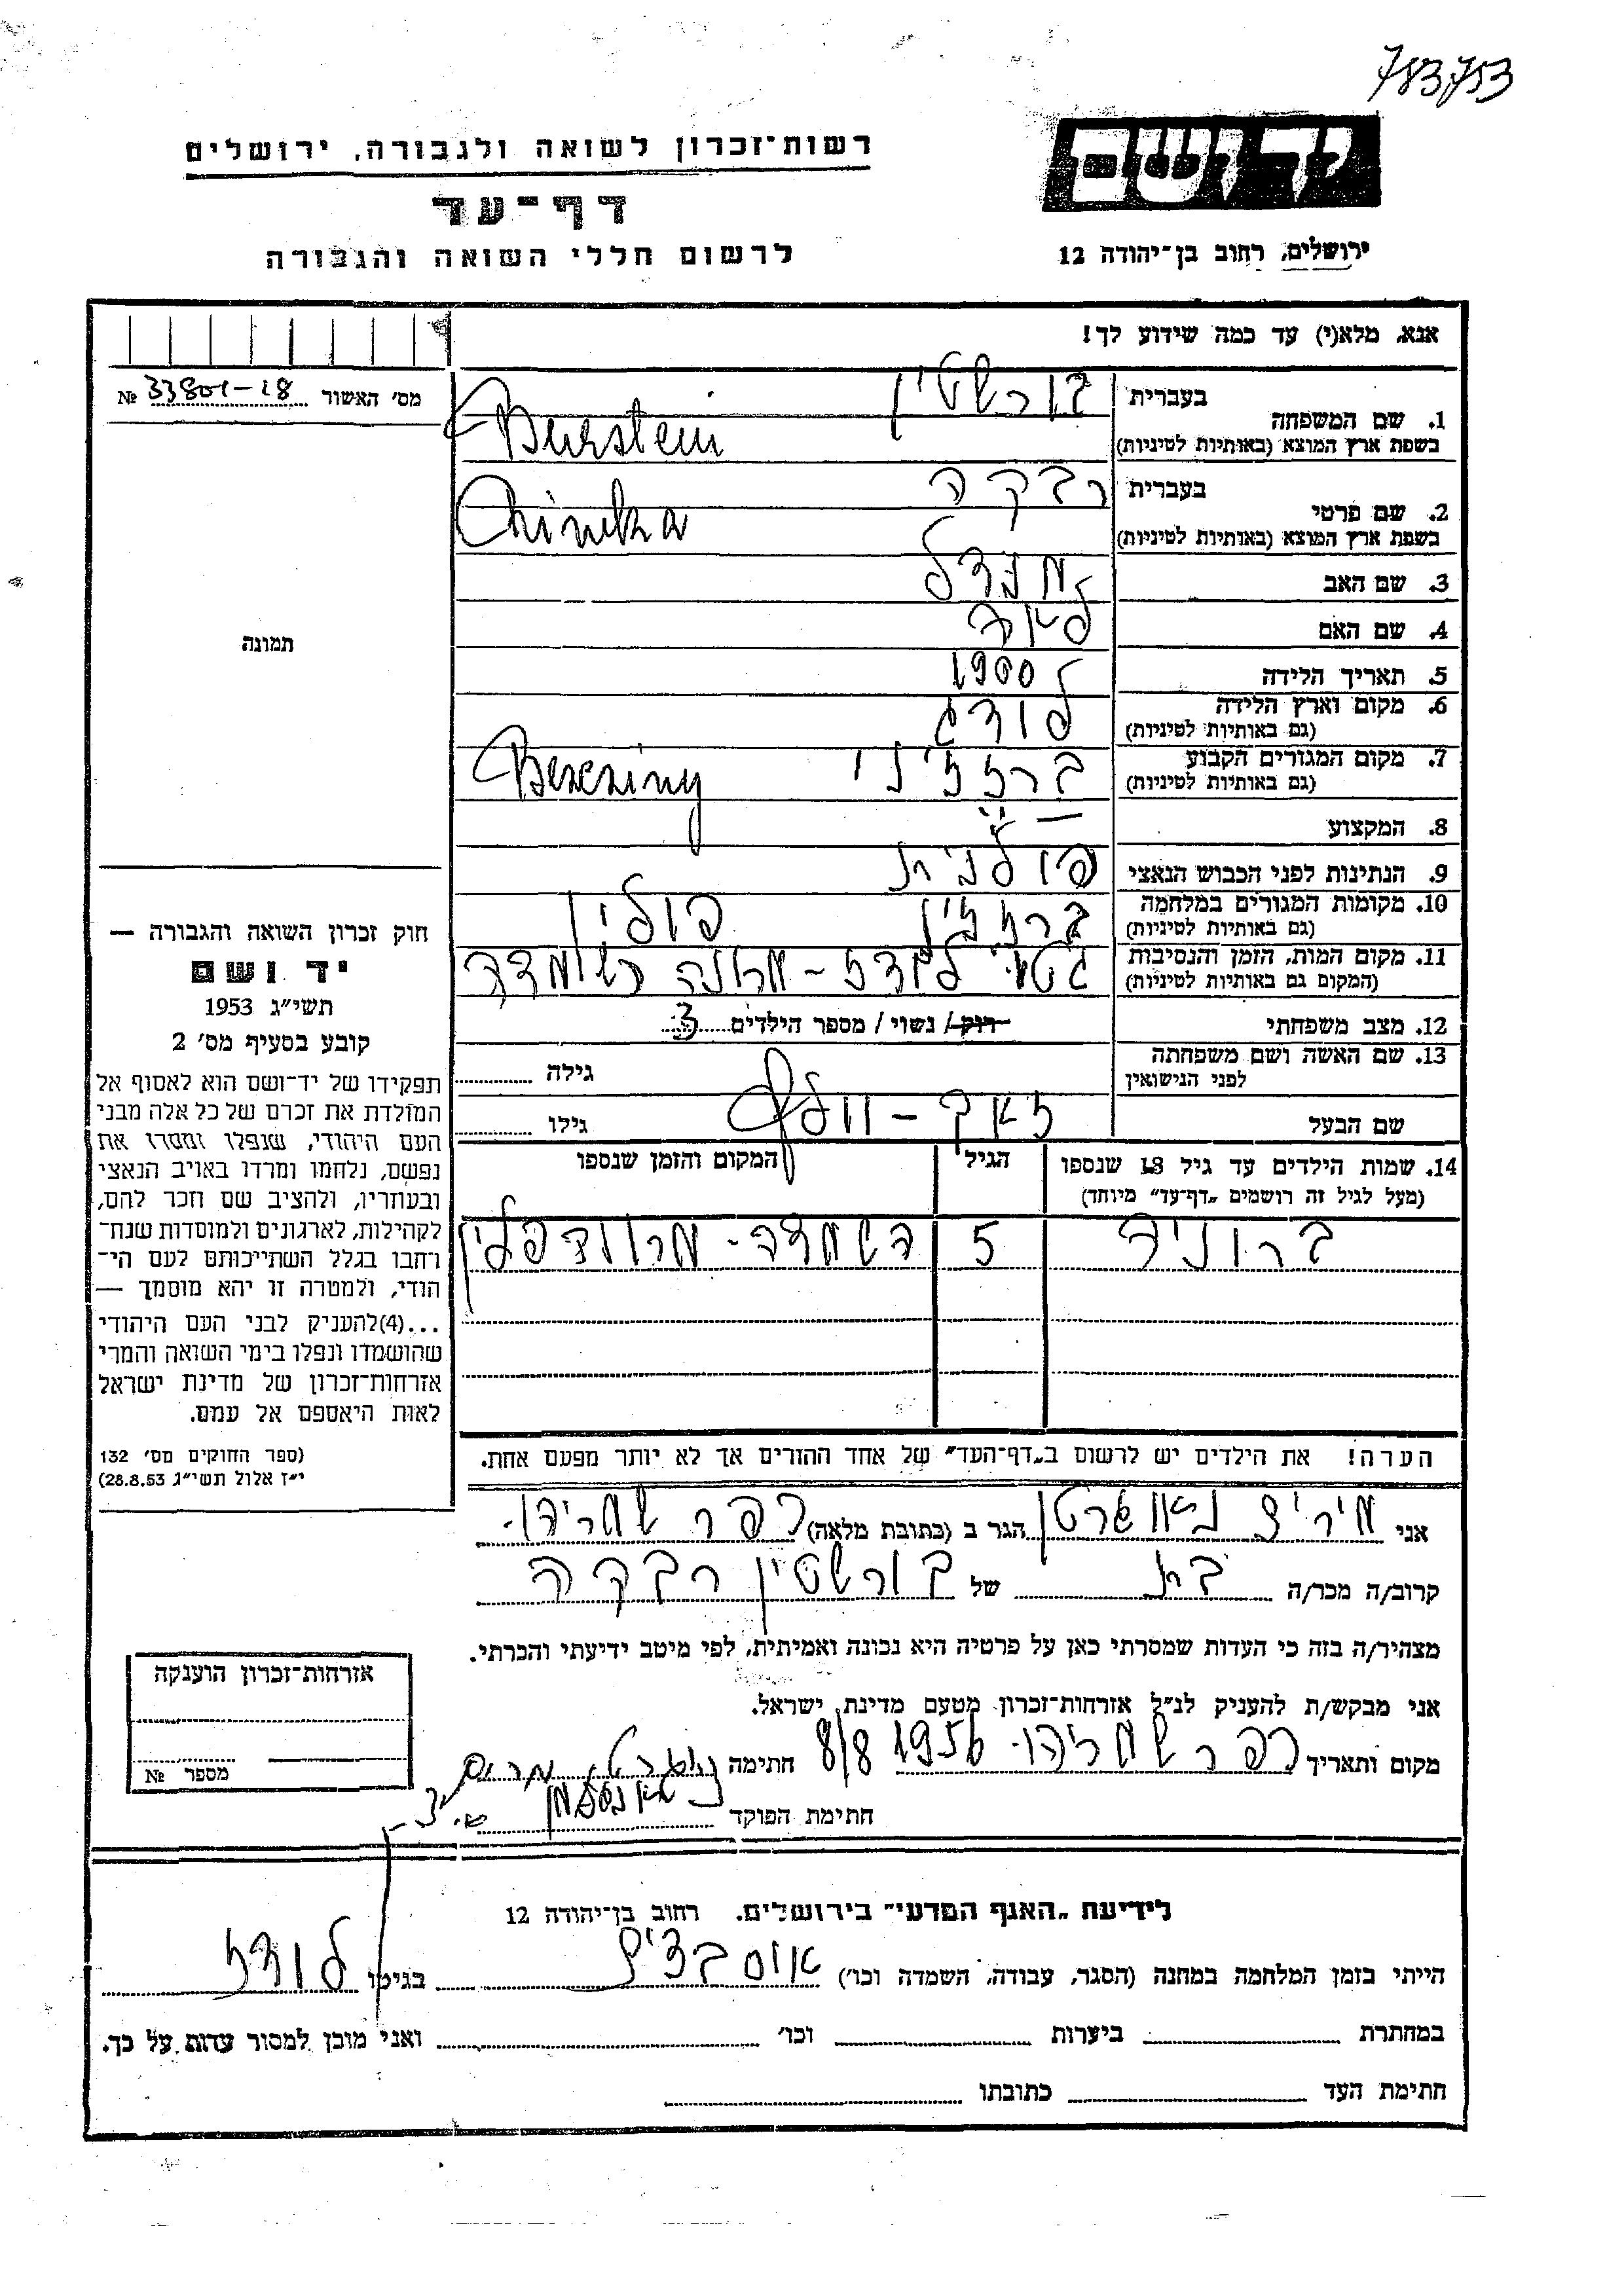 783753
יד ושם
רשות-זכרון לשואה ולגבורה, ירושלים
דף-עד
ירושלים, רחוב בן-יהודה 12
לרשום חללי השואה והגבורה
אנא, מלא(י) עד כמה שידוע לך!
מס' האשור 33801-18 №
1. שם המשפחה
בעברית בורשטין
בשפת ארץ המוצא (באותיות לטיניות) Burstein
2. שם פרטי
בעברית רבקה
בשפת ארץ המוצא (באותיות לטיניות)
3. שם האב מנדל
4. שם האם לאה
5. תאריך הלידה 1900
6. מקום וארץ הלידה
(גם באותיות לטיניות) לודז
7. מקום המגורים הקבוע
(גם באותיות לטיניות) ברזיני Bereziny
8. המקצוע —
9. הנתינות לפני הכבוש הנאצי פולנית
10. מקומות המגורים במלחמה
(גם באותיות לטיניות) ברזזין פולין
11. מקום המות, הזמן והנסיבות
(המקום גם באותיות לטיניות) גטו לודז -
12. מצב משפחתי רוק/ נשוי/ מספר הילדים 3
13. שם האשה ושם משפחתה
לפני הנישואין גילה
שם הבעל זאב - וולף גילו
14. שמות הילדים עד גיל 18 שנספו
(מעל לגיל זה רושמים „דף-עד" מיוחד)
הגיל
המקום והזמן שנספו
ברוניה 5 השמדה -
הערה! את הילדים יש לרשום ב„דף-העד" של אחד ההורים אך לא יותר מפעם אחת.
תמונה
חוק זכרון השואה והגבורה —
יד ושם
תשי"ג 1953
קובע בסעיף מס' 2
תפקידו של יד-ושם הוא לאסוף אל
המולדת את זכרם של כל אלה מבני
העם היהודי, שנפלו ומסרו את
נפשם, נלחמו ומרדו באויב הנאצי
ובעוזריו, ולהציב שם וזכר להם,
לקהילות, לארגונים ולמוסדות שנח-
רחבו בגלל השתייכותם לעם הי-
הודי, ולמטרה זו יהא מוסמך —
...(4) להעניק לבני העם היהודי
שהושמדו ונפלו בימי השואה והמרי
אזרחות-זכרון של מדינת ישראל
לאות היאספם אל עמם.
(ספר החוקים מס' 132
י"ז אלול תשי"ג 28.8.53)
אני הגר ב (כתובת מלאה) כפר שמריהו
קרוב/ה מכר/ה בת של בורשטין רבקה
מצהיר/ה בזה כי העדות שמסרתי כאן על פרטיה היא נכונה ואמיתית, לפי מיטב ידיעתי והכרתי.
אני מבקש/ת להעניק לנ"ל אזרחות-זכרון מטעם מדינת ישראל.
מקום ותאריך כפר שמריהו 8/8 1956 חתימה
חתימת הפוקד
אזרחות-זכרון הוענקה
מספר №
לידיעת „האגף המדעי" בירושלים, רחוב בן-יהודה 12
הייתי בזמן המלחמה במחנה (הסגר, עבודה, השמדה וכו') בגיטו לודז
במחתרת ביערות וכו' ואני מוכן למסור עדות על כך.
חתימת העד כתובתו